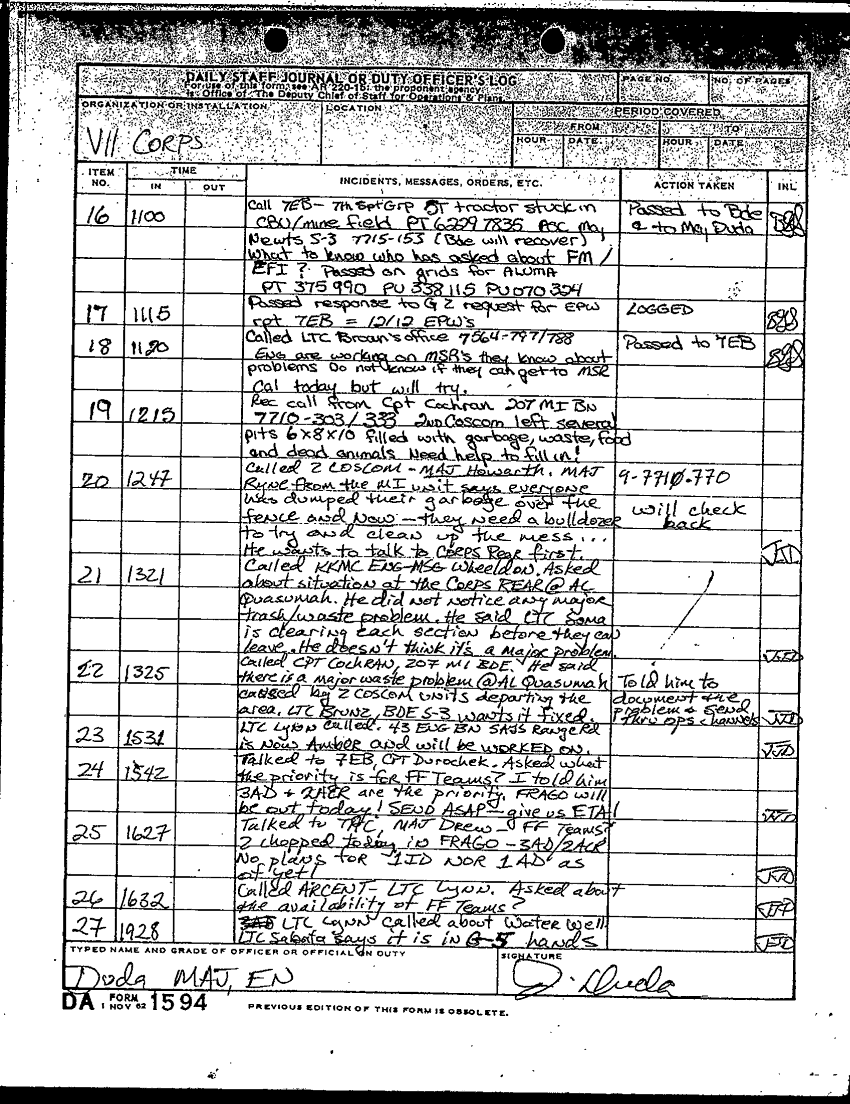 DAILY STAFF JOURNAL OR DUTY OFFICER'S LOG
For use of this form, see AR 220-15; the proponent agency
is Office of The Deputy Chief of Staff for Operations & Plans.
PAGE NO.
NO. OF PAGES
ORGANIZATION OR INSTALLATION
VII CORPS
LOCATION
PERIOD COVERED
FROM
TO
HOUR
DATE
HOUR
DATE
ITEM NO.
TIME
IN
OUT
INCIDENTS, MESSAGES, ORDERS, ETC.
ACTION TAKEN
INL
16 1100 Call 7EB- 7th Spt Grp 5T tractor stuck in Passed to Bde
CBU/mine field PT 6299 7835 POC Maj & to Maj Duda
Newts S-3 7715-153 (Bde will recover)
What to know who has asked about FM/
EFI? Passed on grids for ALUMA
PT 375990 PU 338115 PU070324
17 1115 Passed response to G2 request for EPW LOGGED
rpt 7EB = 12/12 EPW's
18 1120 Called LTC Brown's office 7564-797/788 Passed to 7EB
Eng are working on MSR's they know about
problems Do not know if they can get to MSR
Cal today but will try.
19 1215 Rec call from Cpt Cochran 207 MI BN
7710-303/333 2nd Coscom left several
pits 6x8x10 filled with garbage, waste, food
and dead animals Need help to fill in!
20 1247 Called 2 COSCOM - MAJ Howarth. MAJ 9-7710-770
Ryne from the MI unit says everyone
has dumped their garbage over the will check
fence and Now - they need a bulldozer back
to try and clean up the mess...
He wants to talk to CORPS Rear first.
21 1321 Called KKMC ENG-MSG Wheeldon. Asked
about situation at the CORPS REAR @ AL
Quasumah. He did not notice any major
trash/waste problem. He said LTC Soma
is clearing each section before they can
leave. He doesn't think it's a major problem.
22 1325 Called CPT COCHRAN, 207 MI BDE. He said
there is a major waste problem @ AL Quasumah Told him to
caused by 2 COSCOM units departing the document the
area. LTC Brunz, BDE S-3 wants it fixed. problem & send
thru ops channels
23 1531 LTC Lynn called. 43 ENG BN SAYS Range Rd
is Now Amber and will be WORKED ON.
24 1542 Talked to 7EB, CPT Durochek. Asked what
the priority is for FF Teams? I told him
3AD + 2ACR are the priority. FRAGO will
be out today! SEND ASAP - give us ETA!
25 1627 Talked to TAC, MAJ Drew - FF Teams?
2 chopped today in FRAGO - 3AD/2ACR
No plans for 1ID NOR 1AD as
of yet!
26 1632 Called ARCENT - LTC Lynn. Asked about
the availability of FF Teams?
27 1928 LTC Lynn called about Water Well
LTC Sabata says it is in G-5 hands
TYPED NAME AND GRADE OF OFFICER OR OFFICIAL ON DUTY
Duda MAJ, EN
SIGNATURE
J. Duda
DA FORM 1 NOV 62 1594
PREVIOUS EDITION OF THIS FORM IS OBSOLETE.